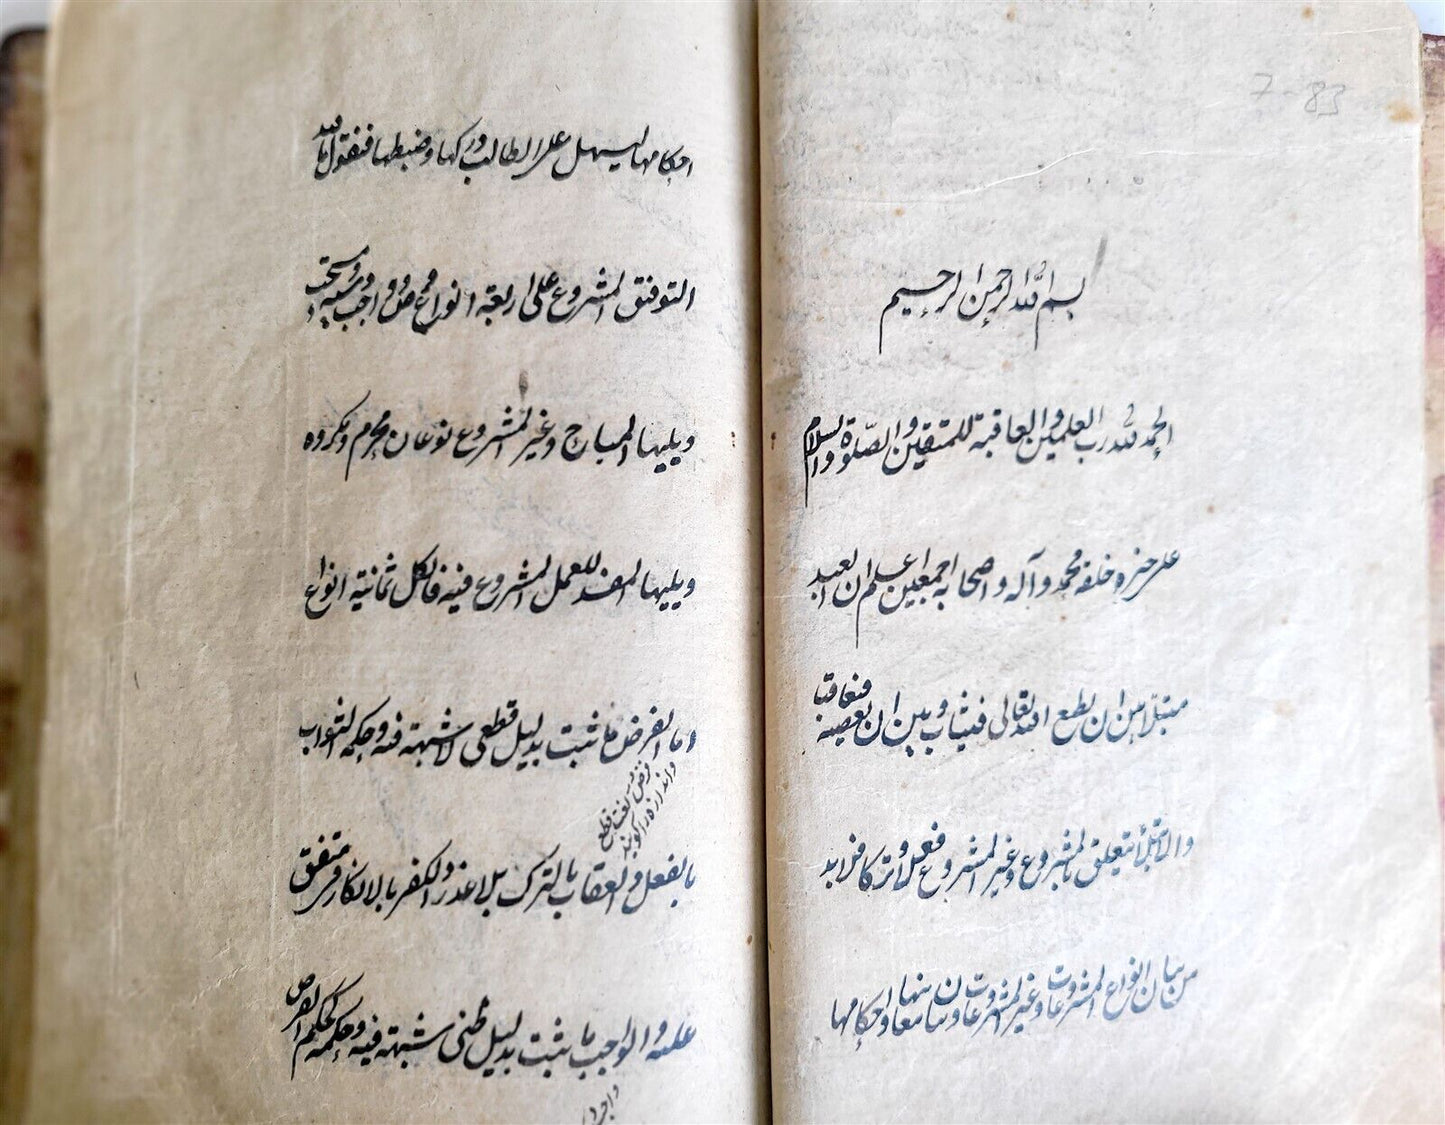 7-83
بسم الله الرحمن الرحيم
الحمد لله رب العلمين والعاقبة للمتقين والصلوة والسلام
على خير خلقه محمد وآله واصحابه اجمعين اعلم ان العبد
مبتلا بين ان يطع الله تعالى فيثاب وبين ان يعصيه فيعاقب
والابتلاء يتعلق بالمشروع وغير المشروع فعلا وتركا فلا بد
من بيان انواع المشروعات وغير المشروعات وبيان معانيها واحكامها
احكامها ليسهل على الطالب دركها وضبطها فنقول بالله
التوفيق المشروع على اربعة انواع فرض وواجب وسنة ومستحب
ويليها المباح وغير المشروع نوعان محرم ومكروه
ويليها المفسد للعمل المشروع فيه فالكل ثمانية انواع
اما الفرض ما ثبت بدليل قطعي لا شبهة فيه وحكمه الثواب
بالفعل والعقاب بالترك بلا عذر والكفر بالانكار في متفق
عليه والواجب ما ثبت بدليل ظني شبهة فيه وحكمه كحكم الفرض